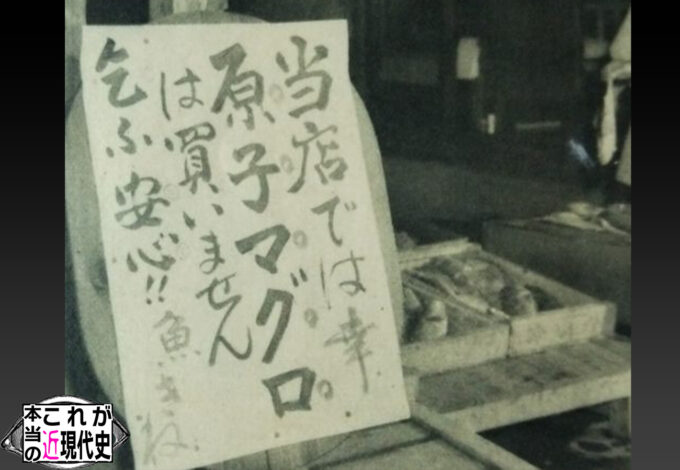 当店では幸
原子マグロ
は買いません
乞ふ安心!!
魚
これが
本当の
近現代史